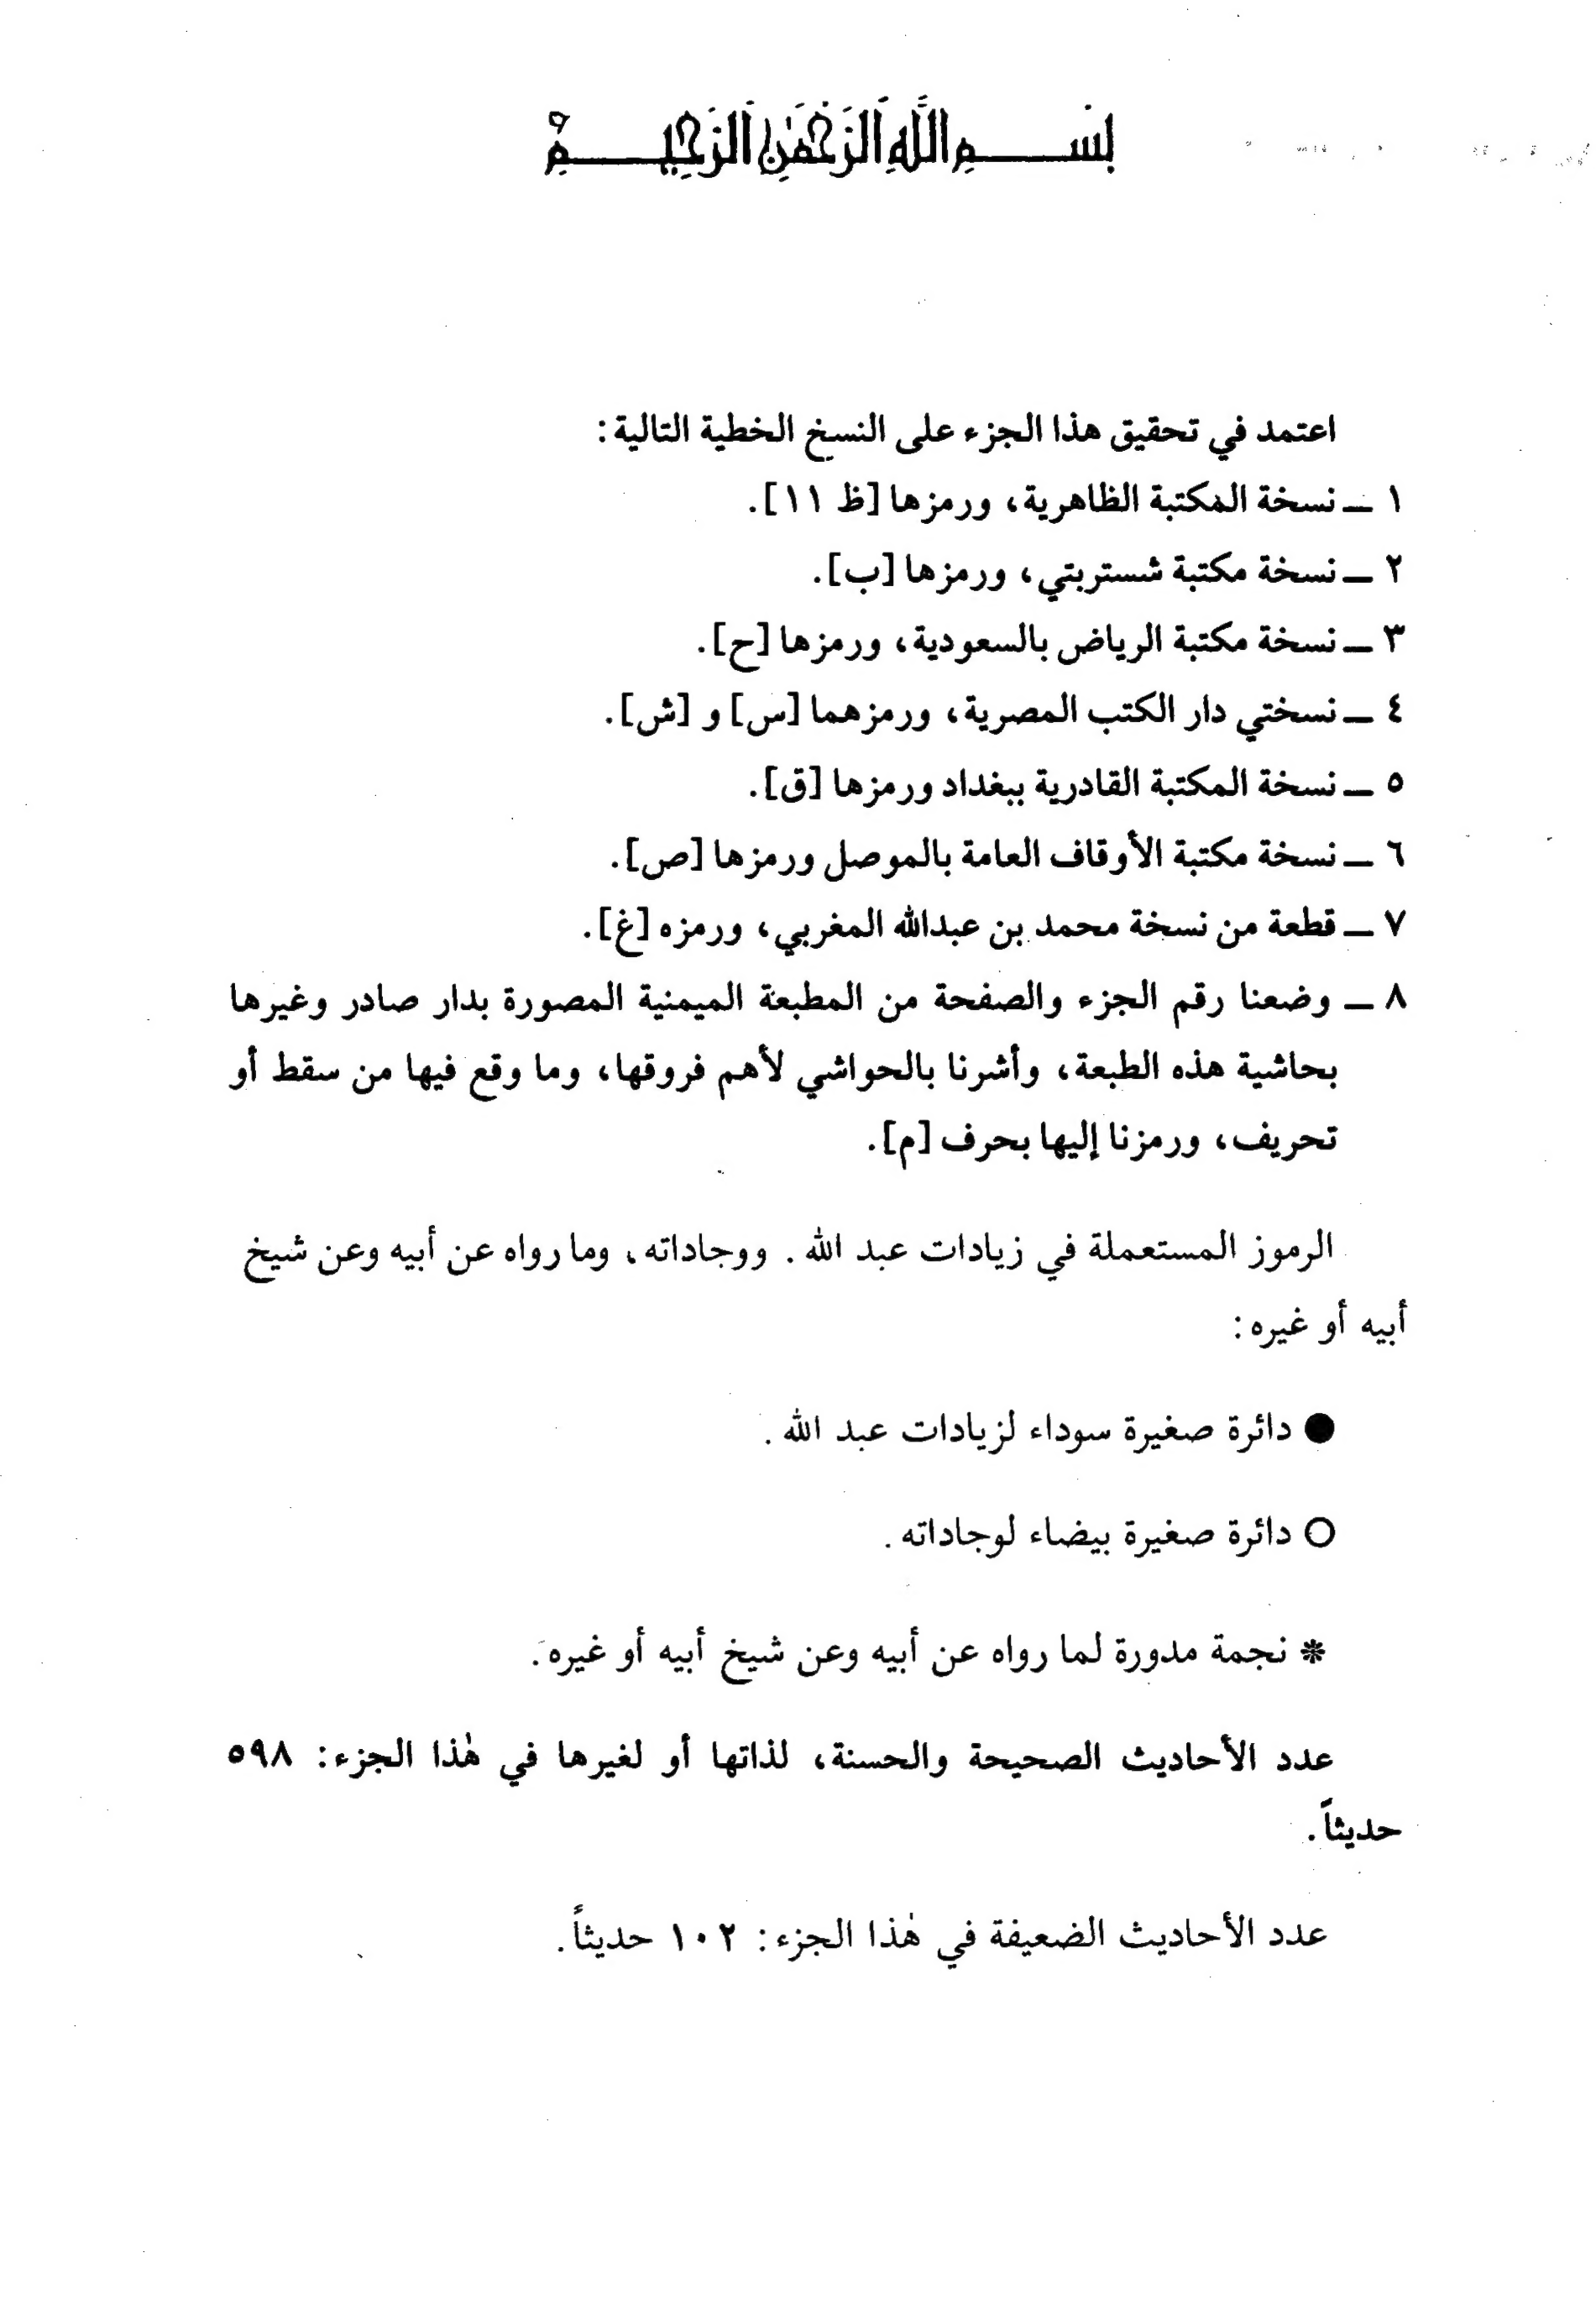 بِسْمِ اللَّهِ الرَّحْمَٰنِ الرَّحِيمِ
اعتمد في تحقيق هذا الجزء على النسخ الخطية التالية:
١ ــ نسخة المكتبة الظاهرية، ورمزها [ظ ١١].
٢ ــ نسخة مكتبة شستربتي، ورمزها [ب].
٣ ــ نسخة مكتبة الرياض بالسعودية، ورمزها [ح].
٤ ــ نسختي دار الكتب المصرية، ورمزهما [س] و [ش].
٥ ــ نسخة المكتبة القادرية ببغداد ورمزها [ق].
٦ ــ نسخة مكتبة الأوقاف العامة بالموصل ورمزها [ص].
٧ ــ قطعة من نسخة محمد بن عبدالله المغربي، ورمزه [غ].
٨ ــ وضعنا رقم الجزء والصفحة من المطبعة الميمنية المصورة بدار صادر وغيرها
بحاشية هذه الطبعة، وأشرنا بالحواشي لأهم فروقها، وما وقع فيها من سقط أو
تحريف، ورمزنا إليها بحرف [م].
الرموز المستعملة في زيادات عبد الله . ووجاداته، وما رواه عن أبيه وعن شيخ
أبيه أو غيره:
● دائرة صغيرة سوداء لزيادات عبد الله .
○ دائرة صغيرة بيضاء لوجاداته .
* نجمة مدورة لما رواه عن أبيه وعن شيخ أبيه أو غيره.
عدد الأحاديث الصحيحة والحسنة، لذاتها أو لغيرها في هٰذا الجزء: ٥٩٨
حديثاً.
عدد الأحاديث الضعيفة في هٰذا الجزء: ١٠٢ حديثاً.